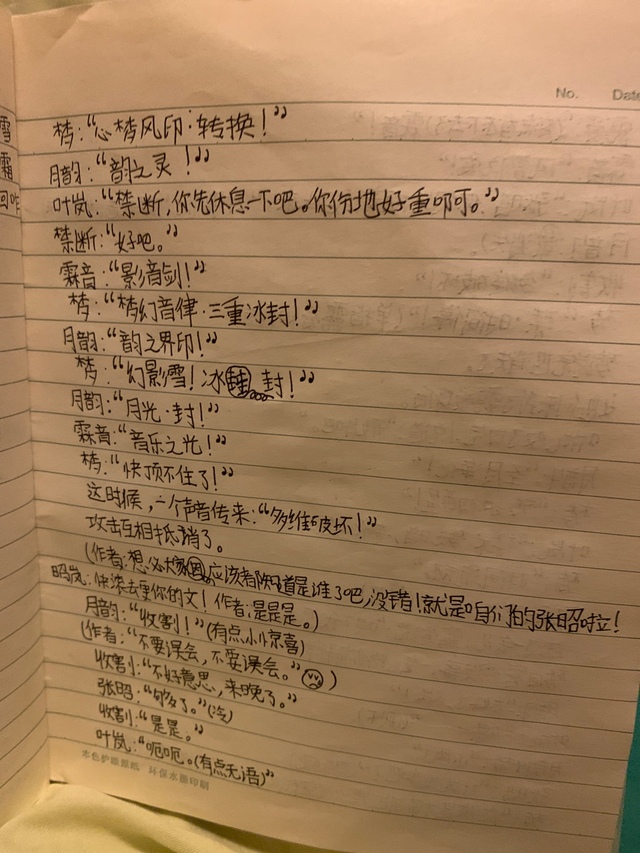 No. Date
雪
霜
梦:“心梦风印·转换!”
月韵:“韵之灵!”
叶岚:“禁断,你先休息一下吧。你伤地好重叩可。”
禁断:“好吧。”
霖音:“影音剑!”
梦:“梦幻音律·三重冰封!”
月韵:“韵之界印!”
梦:“幻影雪!冰封!”
月韵:“月光·封!”
霖音:“音乐之光!”
梦:“快顶不住了!”
这时候,一个声音传来:“多维破坏!”
攻击互相抵消了。
(作者:想必大家应该都知道是谁了吧,没错!就是咱们的张昭啦!
昭岚:快滚去更你的文!作者:是是是。)
月韵:“收割!”(有点小小惊喜)
(作者:“不要误会,不要误会。”)
收割:“不好意思,来晚了。”
张昭:“够了。”(冷)
收割:“是是。”
叶岚:“呃呃。(有点无语)”
本色护眼原纸 环保水墨印刷